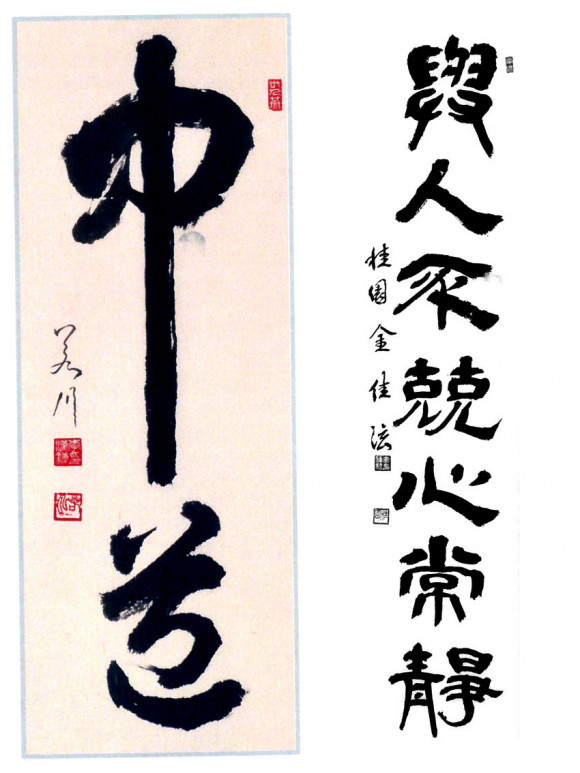 中道
與人不競心常靜
桂園 金佳